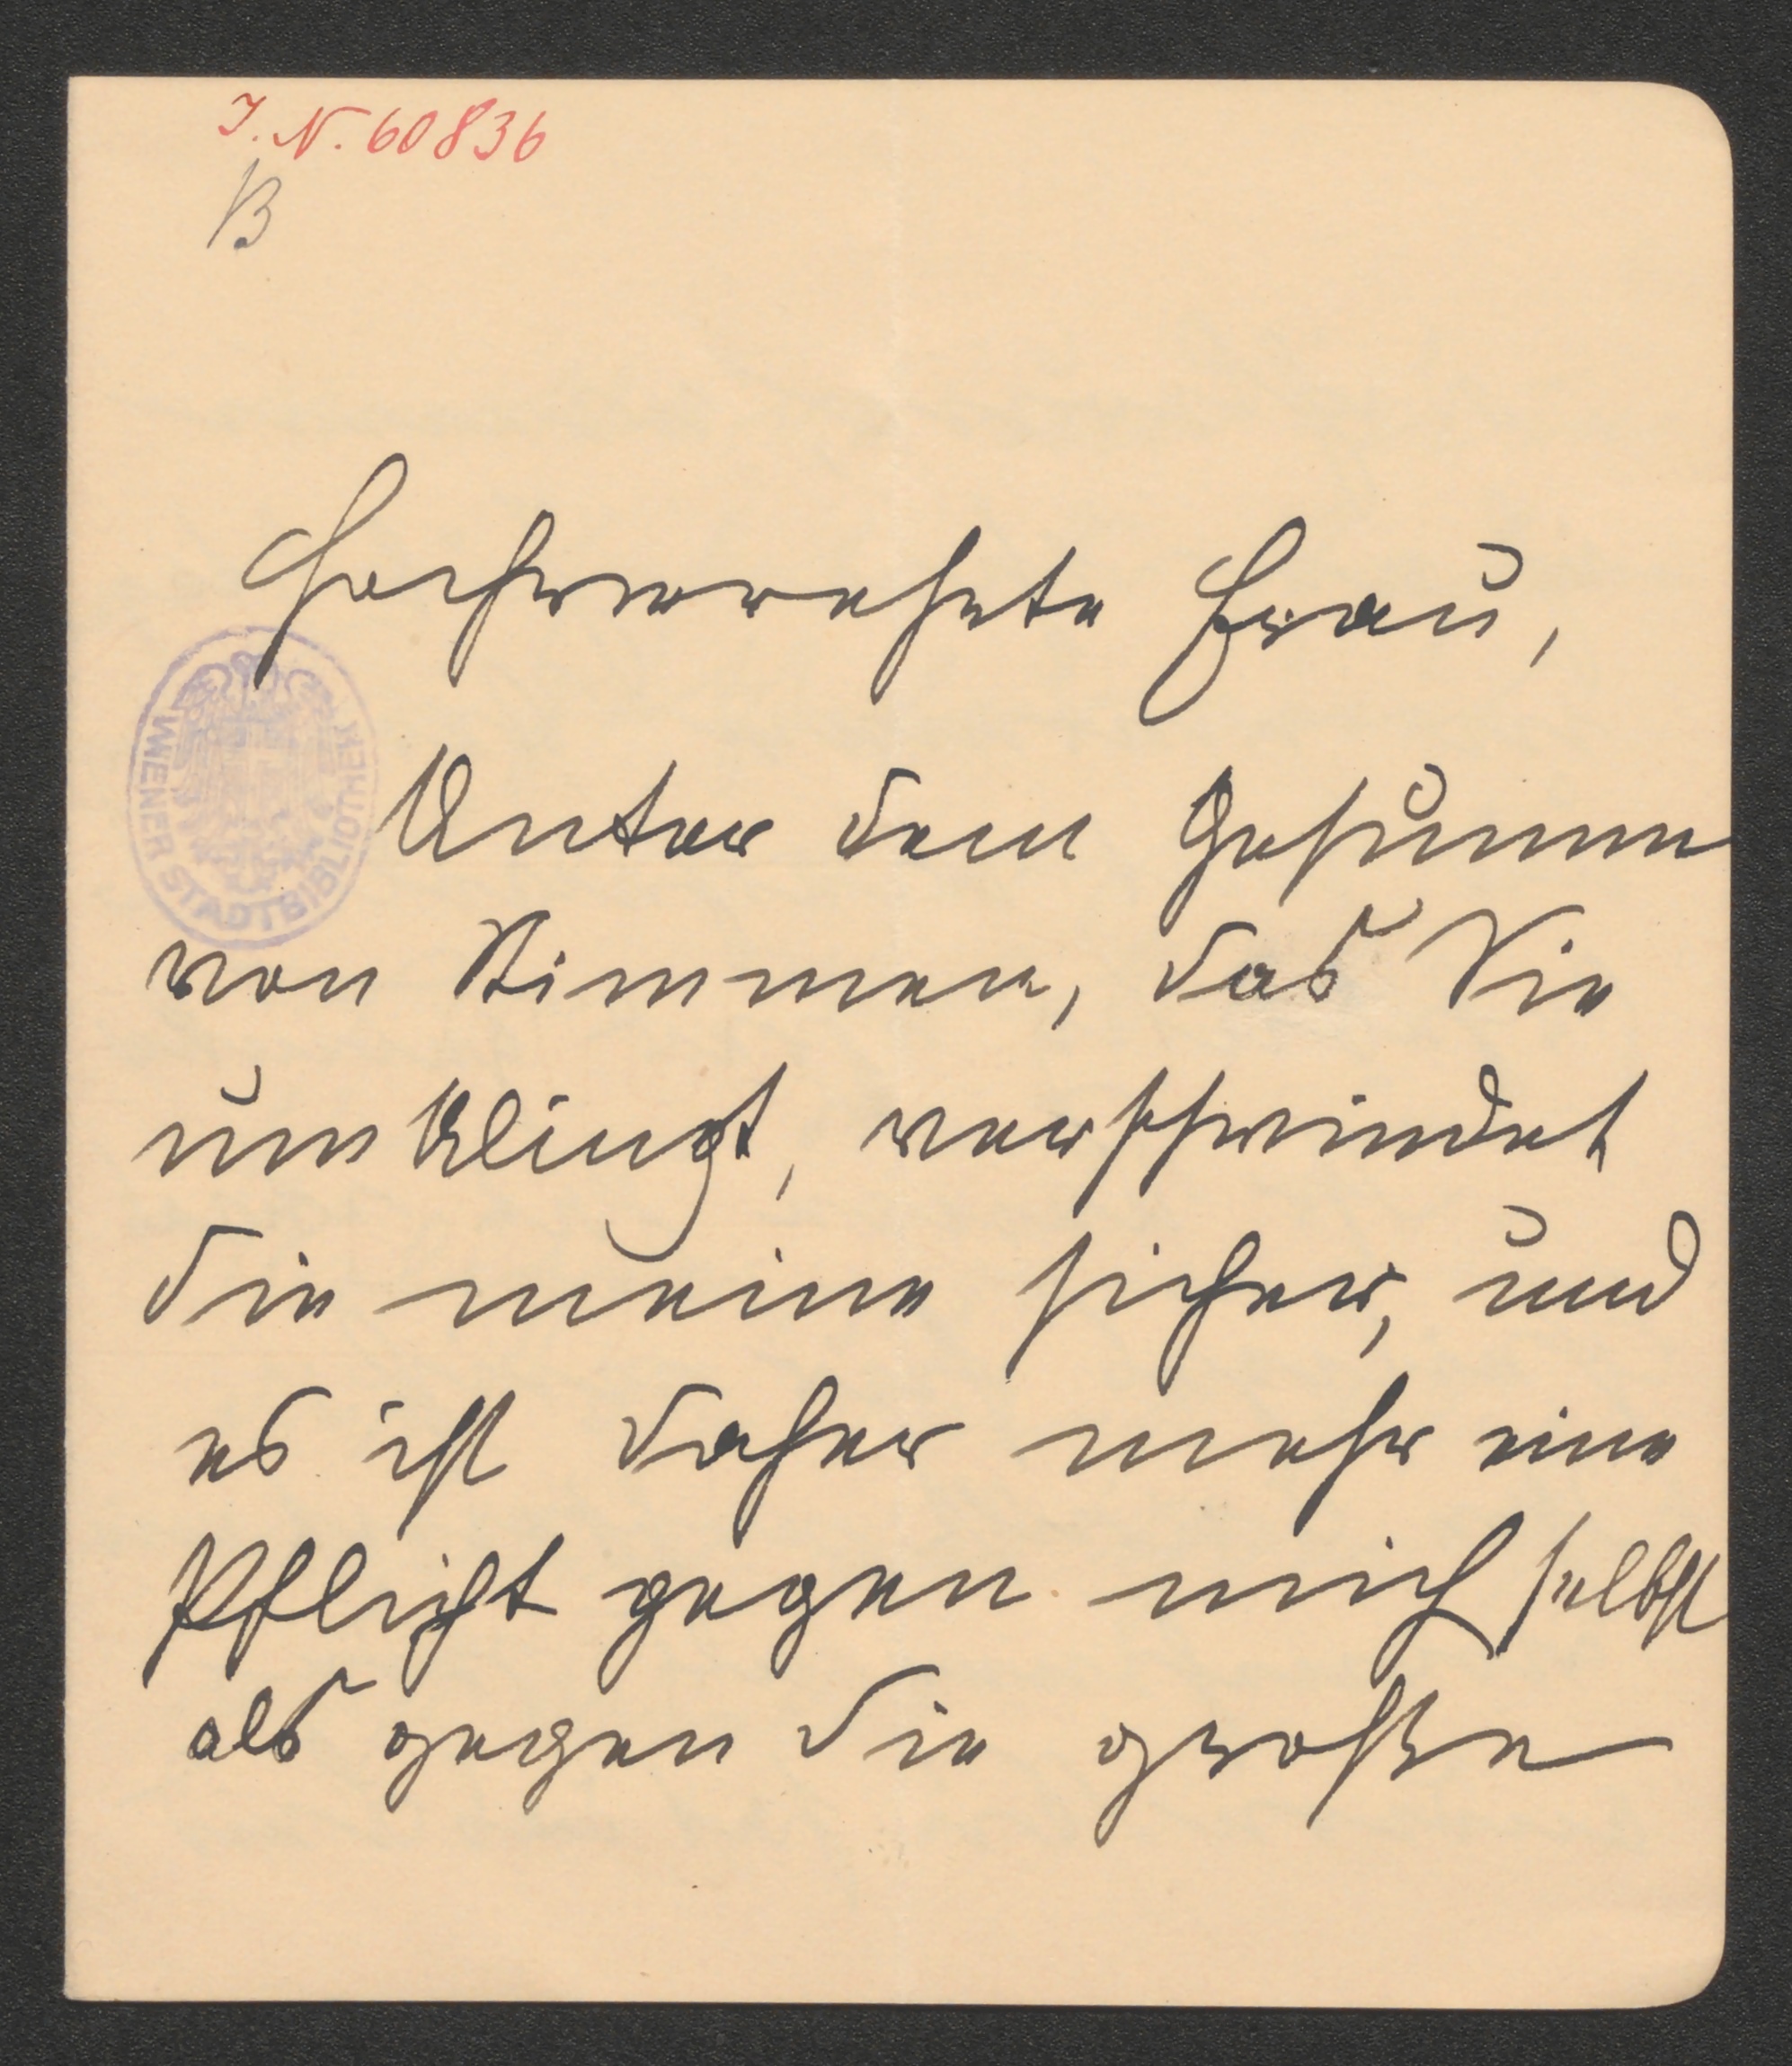 I. N. 60836
B
Hochverehrte Frau,
WIENER STADTBIBLIOTHEK
Unter dem Gesumme
von Stimmen, das Sie
umklingt, verschwindet
die meine sicher, und
es ist daher mehr eine
Pflicht gegen mich selbst
als gegen die große